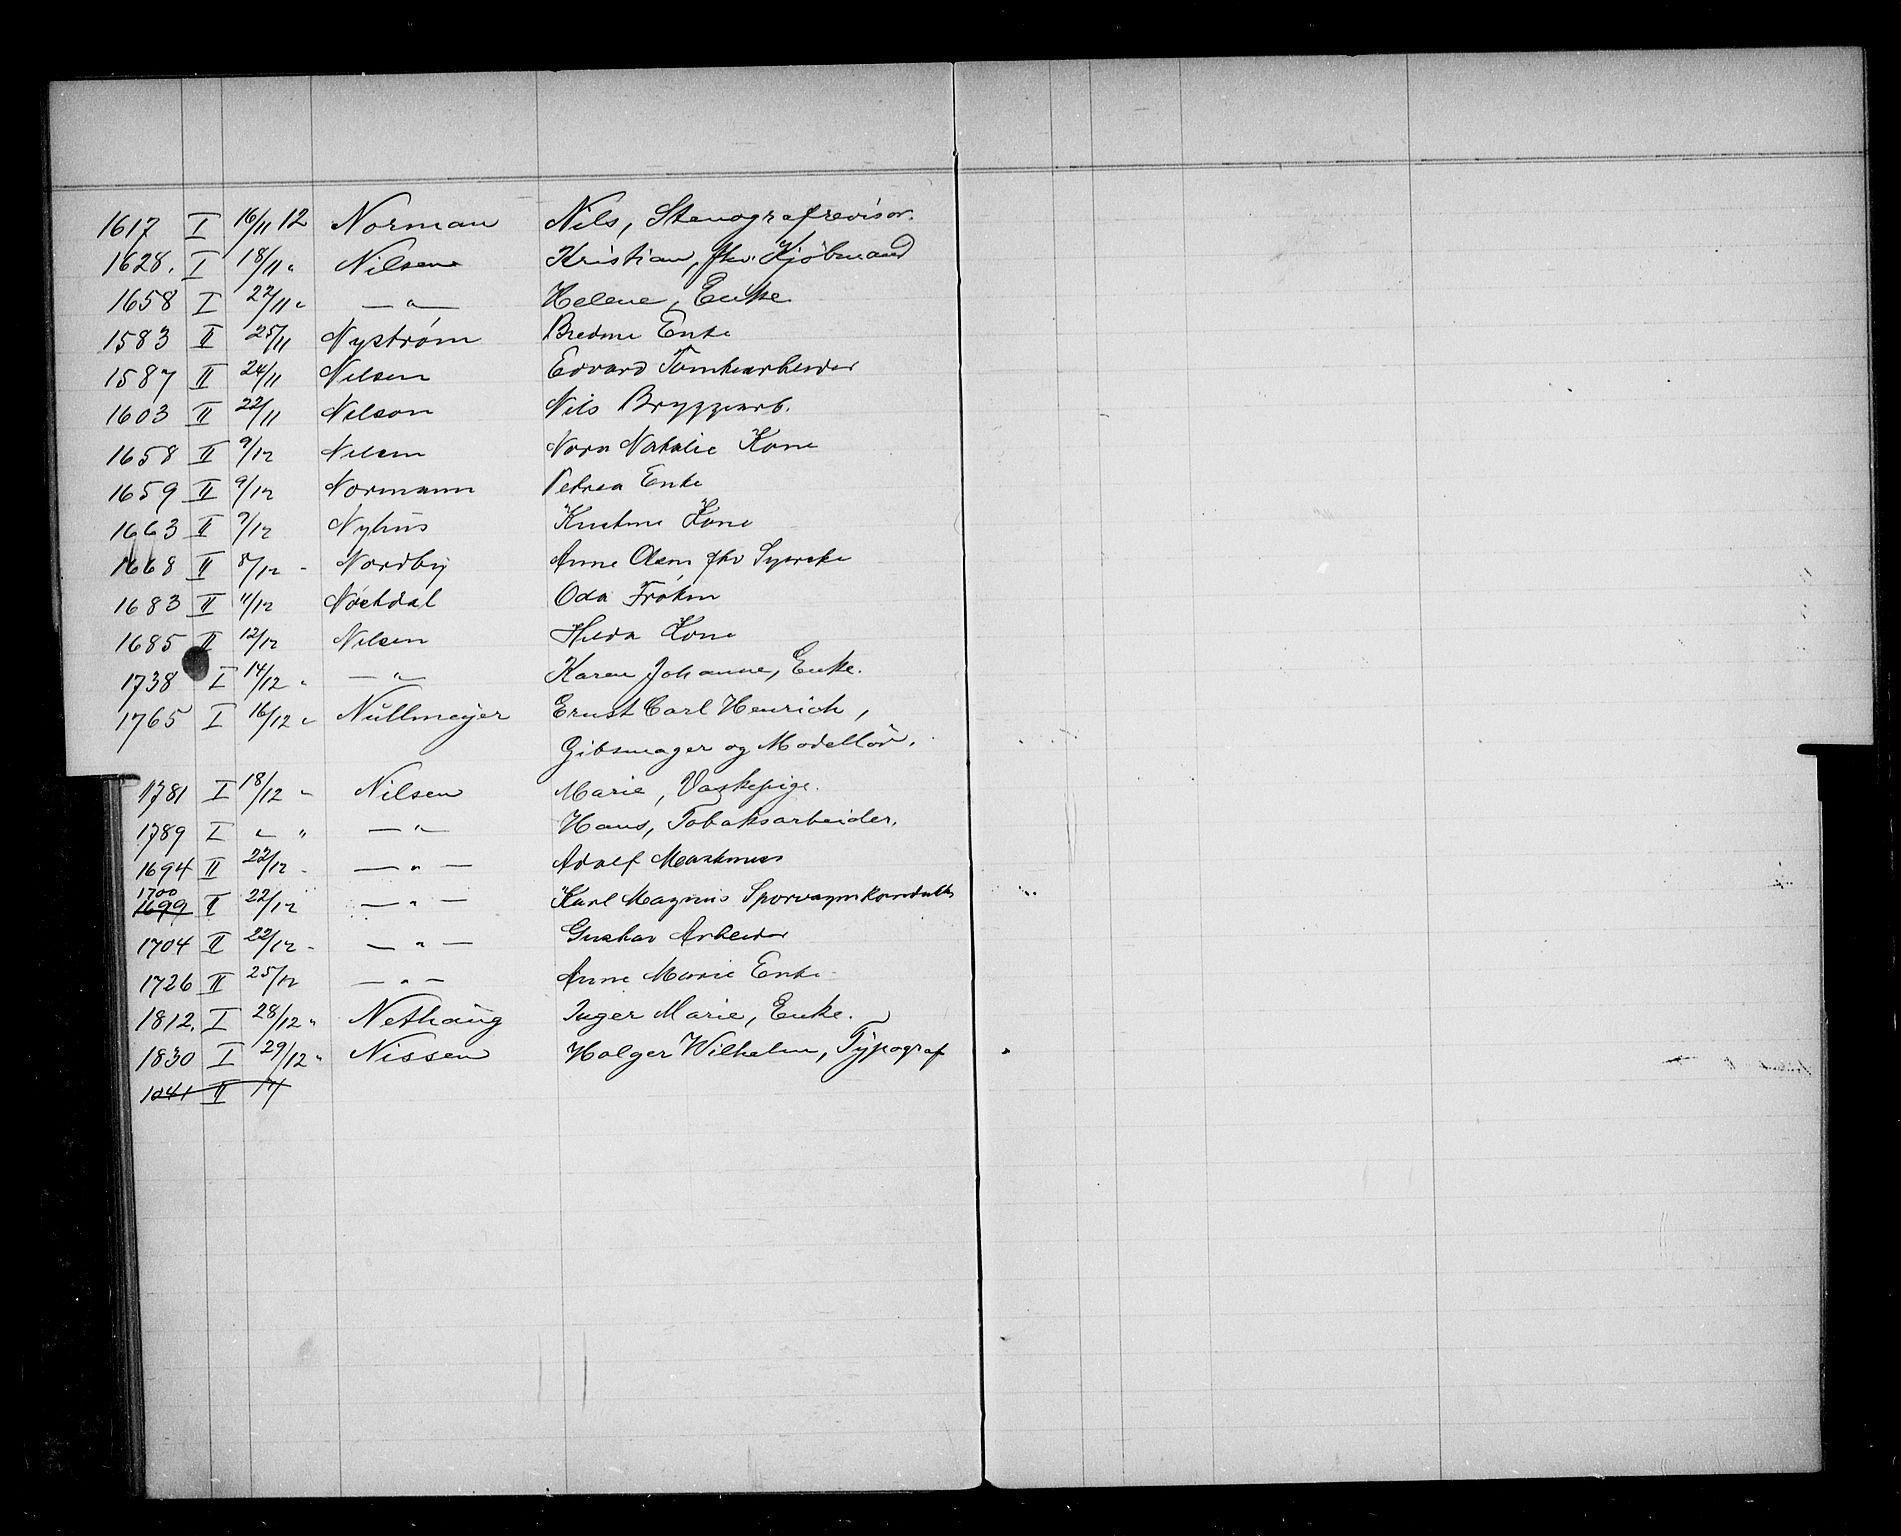 1617 I 16/11 12 Norman Nils, Stenografrevisor.
1628. I 18/11 " Nilsen Kristian, fhv. Kjöbmand
1658 I 22/11 " — " — Helene, Enke
1583 II 25/11 Nystrøm Enke
1587 II 24/11 Nilsen Edvard Tomtearbeider
1603 II 22/11 Nilson Nils Bryggearb.
1658 II 9/12 Nilsen Nora Natalie Kone
1659 II 9/12 Normann Petrea Enke
1663 II 7/12 Nyhus Kristine Kone
1668 II 8/12 - Nordby Anne Olsen fhv Syerske
1683 II 11/12 Oda Frøken
1685 II 12/12 Nilsen Hilda Kone
1738 I 14/12 " — " — Karen Johanne, Enke.
1765 I 16/12 " Nüllmeyer Ernst Carl Henrich,
Gibsmager og Modellör.
1781 I 18/12 " Nilsen Marie, Vaskepige.
1789 I " " — " — Hans, Tobaksarbeider.
1694 II 22/12 - — " — Adolf
1700
1699 II 22/12 — " — Karl Magnus
1704 II 22/12 - — " — Gustav Arbeider
1726 II 25/12 — " — Anne Marie Enke
1812. I 28/12 " Nethaug Inger Marie, Enke.
1830 I 29/12 " Nissen Holger Wilhelm, Typograf
1041 II